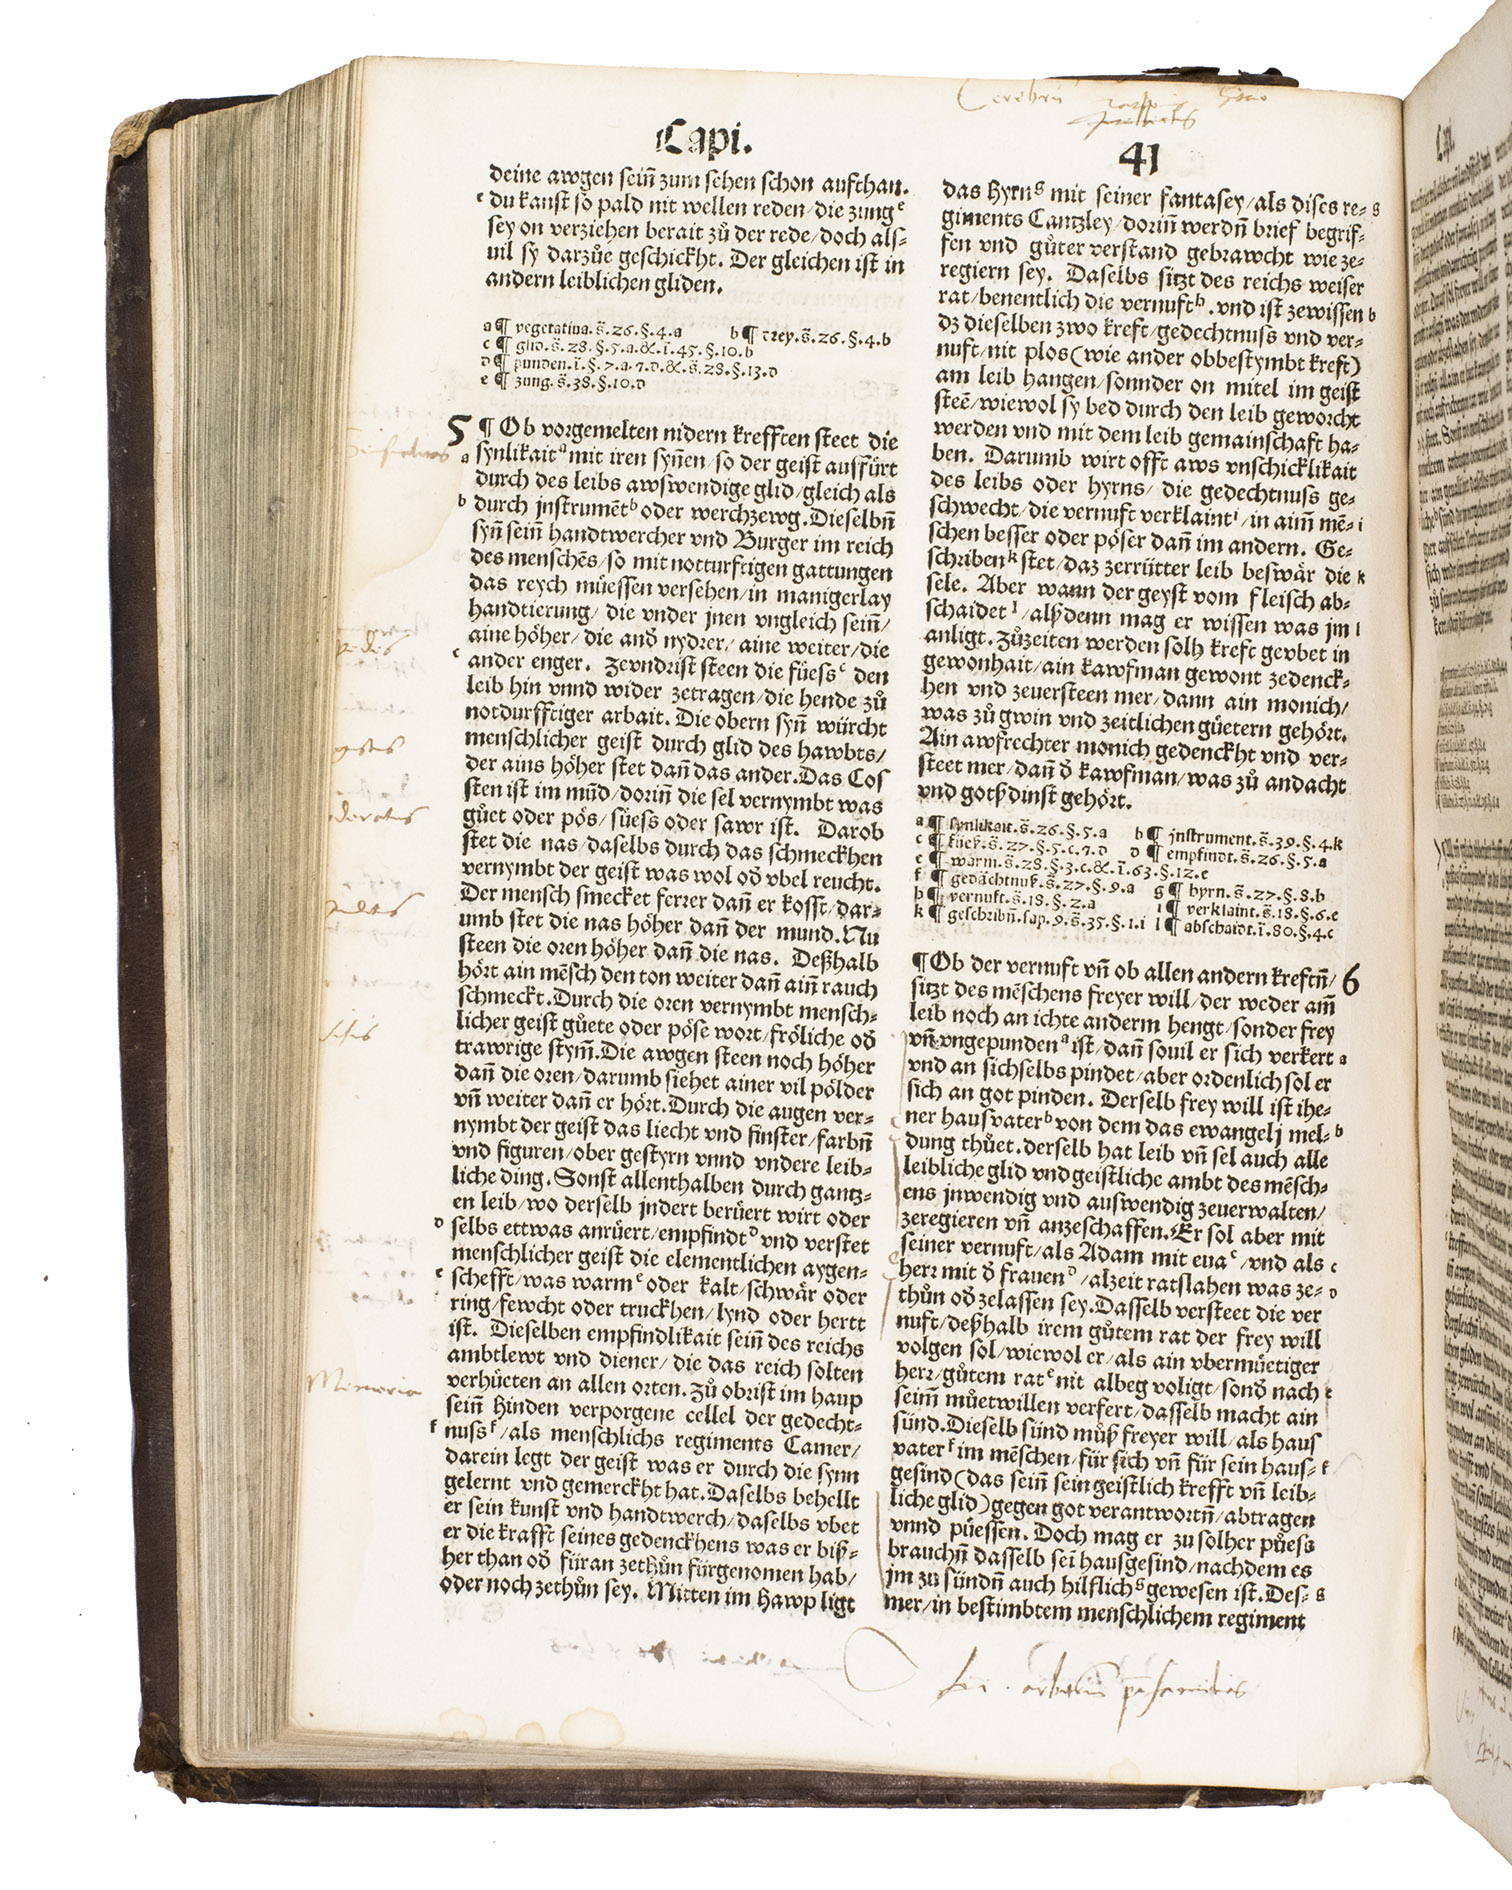 Capi.
41
deine awgen sein̄ zum sehen schon aufthan.
e du kanst so pald nit wellen reden/die zungᵉ
sey on verziehen berait zů der rede/doch als⸗
uil sy darzůe geschickht. Der gleichen ist in
andern leiblichen gliden.
a ¶ vegetatiua. s̄. 26. §. 4. a b ¶ trey. s̄. 26. §. 4. b
c ¶ glid. s̄. 28. §. 5. a. &. ī. 45. §. 10. b
d ¶ punden. ī. §. 7. a. 7. d. &. s̄. 28. §. 13. d
e ¶ zung. s̄. 38. §. 10. d
5 ¶ Ob vorgemelten nidern krefften steet die
a synlikaitᵃ mit iren syn̄en/so der geist ausfürt
durch des leibs awswendige glid/gleich als
b durch jnstrumētᵇ oder werchzewg. Dieselbn̄
syn̄ sein̄ handtwercher vnd Burger im reich
des menschēs/so mit notturftigen gattungen
das reych můessen versehen/in manigerlay
handtierung/ die vnder jnen vngleich sein̄/
aine höher/die and̕ nydrer/ aine weiter/die
c ander enger. Zevndrist steen die füessᶜ den
leib hin vnnd wider zetragen/die hende zů
notdurfftiger arbait. Die obern syn̄ würcht
menschlicher geist durch glid des hawbts/
der ains höher stet dan̄ das ander. Das Cos
sten ist im mūd/dorin̄ die sel vernymbt was
gůet oder pös/süess oder sawr ist. Darob
stet die nas/daselbs durch das schmeckhen
vernymbt der geist was wol od̕ vbel reucht.
Der mensch smecket ferrer dan̄ er kosst/dar⸗
umb stet die nas höher dan̄ der mund. Nu
steen die oren höher dan̄ die nas. Deßhalb
hört ain mēsch den ton weiter dan̄ ain̄ rauch
schmeckt. Durch die oren vernymbt mensch⸗
licher geist gůete oder pöse wort/fröliche od̕
trawrige stym̄. Die awgen steen noch höher
dan̄ die oren/darumb siehet ainer vil pölder
vn̄ weiter dan̄ er hört. Durch die augen ver⸗
nymbt der geist das liecht vnd finster/farbn̄
vnd figuren/ober gestyrn vnnd vndere leib⸗
liche ding. Sonst allenthalben durch gantz⸗
en leib/wo derselb jndert berüert wirt oder
d selbs ettwas anrüert/empfindtᵈ vnd verstet
menschlicher geist die elementlichen aygen⸗
e schefft/was warmᵉ oder kalt/schwär oder
ring/fewcht oder truckhen/lynd oder hertt
ist. Dieselben empfindlikait sein̄ des reichs
ambtlewt vnd diener/die das reich solten
verhüeten an allen orten. Zů obrist im haup
sein̄ hinden verporgene cellel der gedecht⸗
f nussᶠ/als menschlichs regiments Camer/
darein legt der geist was er durch die synn
gelernt vnd gemerckht hat. Daselbs behellt
er sein kunst vnd handtwerch/daselbs vbet
er die krafft seines gedenckhens was er biß⸗
her than od̕ füran zethůn fürgenomen hab/
oder noch zethůn sey. Mitten im Hawp ligt
das Hyrnᵍ mit seiner fantasey/als dises re⸗ g
giments Cantzley/dorin̄ werdn̄ brief begrif⸗
fen vnd gůter verstand gebrawcht wie ze⸗
regiern sey. Daselbs sitzt des reichs weiser
rat/benentlich die vernuftʰ. vnd ist zewissen h
dz dieselben zwo kreft/gedechtnuss vnd ver⸗
nuft/nit plos (wie ander obbestymbt kreft)
am leib hangen/sonnder on mitel im geist
steē/wiewol sy bed durch den leib geworcht
werden vnd mit dem leib gemainschaft ha⸗
ben. Darumb wirt offt aws vnschicklikait
des leibs oder hyrns/ die gedechtnuss ge⸗
schwecht/die vernuft verklaintⁱ/in ain̄ mē⸗ i
schen besser oder pöser dan̄ im andern. Ge⸗
schribenᵏ stet/daz zerrütter leib beswär die k
sele. Aber wann der geyst vom fleisch ab⸗
schaidetˡ/alßdenn mag er wissen was jm l
anligt. Zůzeiten werden solh kreft gevbet in
gewonhait/ain kawfman gewont zedenck⸗
hen vnd zeuersteen mer/dann ain monich/
was zů gwin vnd zeitlichen güetern gehört.
Ain awfrechter monich gedenckht vnd ver⸗
steet mer/dan̄ d̕ kawfman/was zů andacht
vnd gotßdinst gehört.
a ¶ synlikait. s̄. 26. §. 5. a b ¶ jnstrument. s̄. 39. §. 4. k
c ¶ füeß. s̄. 27. §. 5. c. 7. d d ¶ empfindt. s̄. 26. §. 5. a
e ¶ warm. s̄. 28. §. 3. c. &. ī. 63. §. 12. e
f ¶ gedächtnuß. s̄. 27. §. 9. a g ¶ hyrn. s̄. 27. §. 8. b
h ¶ vernuft. s̄. 18. §. 2. a i ¶ verklaint. s̄. 18. §. 6. e
k ¶ geschribn̄. sap. 9. s̄. 35. §. 1. i l ¶ abschaidt. ī. 80. §. 4. c
¶ Ob der vernuft vn̄ ob allen andern kreftn̄/ 6
sitzt des mēschens freyer will/der weder am̄
leib noch an ichte anderm hengt/sonder frey
vn̄ vngepundenᵃ ist/dan̄ souil er sich verkert a
vnd an sichselbs pindet/aber ordenlich sol er
sich an got pinden. Derselb frey will ist ihe⸗
ner hausvaterᵇ von dem das ewangelj mel⸗ b
dung thůet. derselb hat leib vn̄ sel auch alle
leibliche glid vnd geistliche ambt des mēsch⸗
ens jnwendig vnd auswendig zeuerwalten/
zeregieren vn̄ anzeschaffen. Er sol aber mit
seiner vernuft/als Adam mit euaᶜ/vnd als c
herr mit d̕ frauenᵈ/alzeit ratslahen was ze⸗ d
thůn od̕ zelassen sey. Dasselb versteet die ver
nuft/deßhalb irem gůtem rat der frey will
volgen sol/wiewol er/als ain vbermüetiger
herr/gůtem ratᵉ nit albeg voligt/sond̕ nach e
seim̄ můetwillen verfert/dasselb macht ain
sünd. Dieselb sünd můß freyer will/als haus
vaterᶠ im mēschen/für sich vn̄ für sein haus⸗ f
gesind (das sein̄ sein geistlich krefft vn̄ leib⸗
liche glid) gegen got verantwortn̄/abtragen
vnnd püessen. Doch mag er zu solher půess
brauchn̄ dasselb sei͞ hausgesind/nachdem es
jm zu sündn̄ auch hilflichᵍ gewesen ist. Des⸗ g
mer/in bestimbtem menschlichem regiment
Cerebrū
pedes
gustus
odoratus
auditus
visus
Memoria